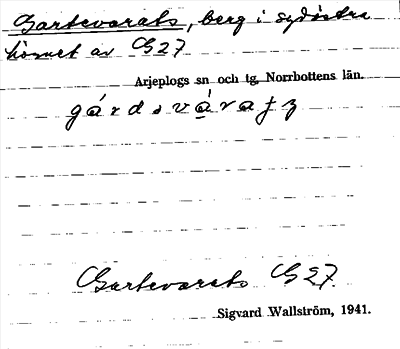 Gartevarats, berg i sydöstra
hörnet av G27
Arjeplogs sn och tg, Norrbottens län.
gárdsváratz
Gartevarats G27.
Sigvard Wallström, 1941.